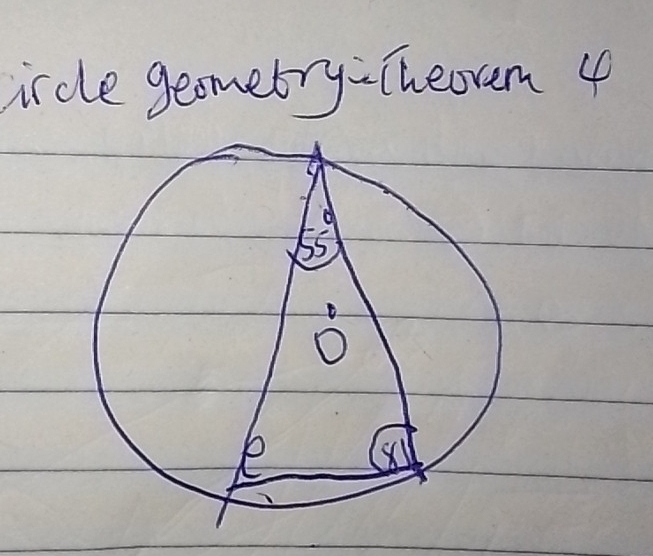 ircle geometry:-Theorem 4
55°
O
e
x